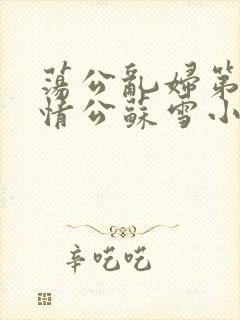 荡公乱婦第
情公蘇雪小
辛吃吃